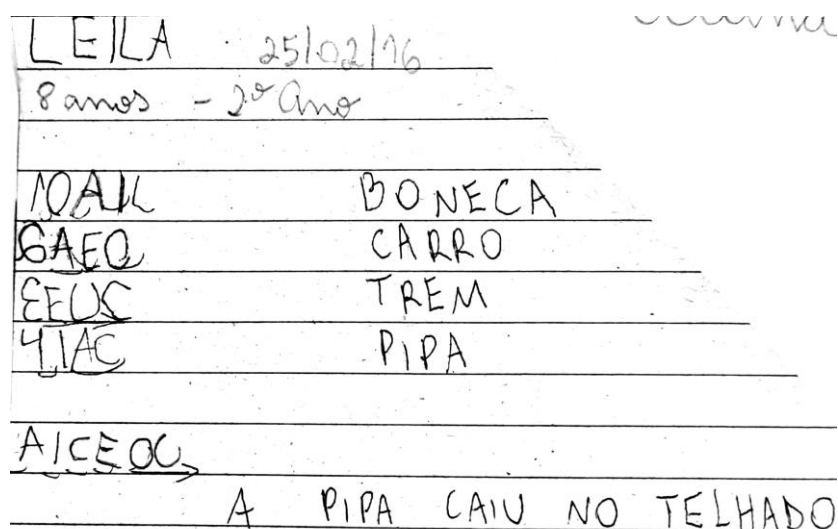 LEILA 25/02/16
8 anos - 2º Ano
BONECA
GAEO CARRO
EEUS TREM
4IAC PIPA
AICEOC
A PIPA CAIU NO TELHADO